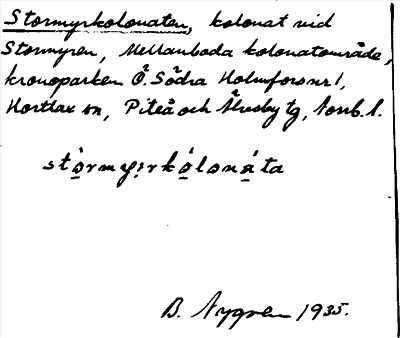 Stormyrkolonaten, kolonat vid
Stormyren, Mellanboda kolonatområde,
kronoparken Ö. Södra Holmfors nr 1,
Hortlax sn, Piteå och Älvsby tg, Norrb. l.
stò̱rmyṛrkó̱loná̱ta
B. Nygren 1935.